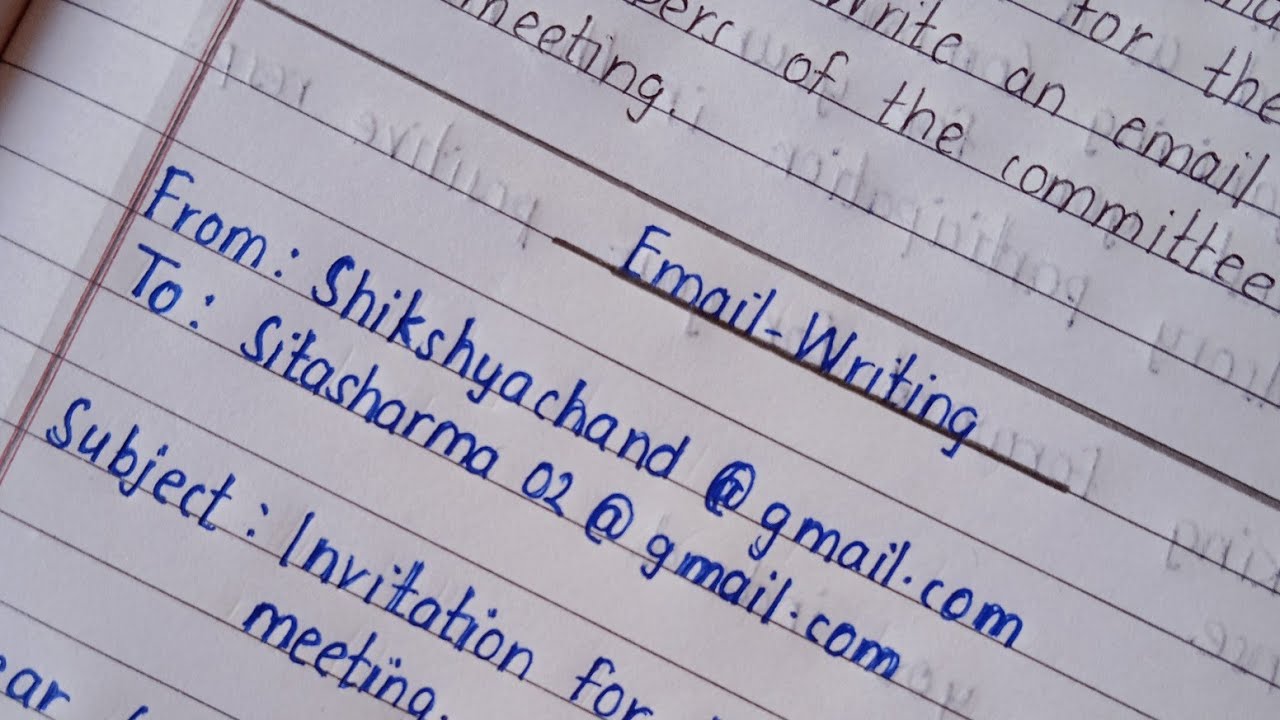 for the
Write an email
of the committee
meeting.
Email-Writing
From: Shikshyachand @gmail.com
To: Sitasharma 02 @ gmail.com
Subject: Invitation for
meeting.